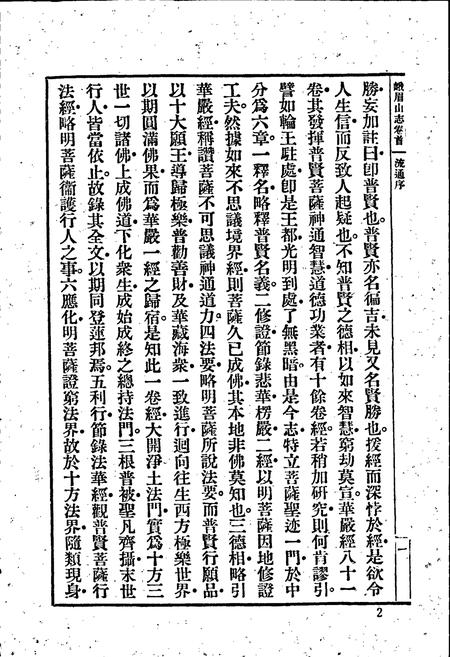 峨眉山志卷首 流通序 一
勝妄加註曰卽普賢也普賢亦名徧吉未見又名賢勝也援經而深悖於經是欲令
人生信而反致人起疑也不知普賢之德相以如來智慧窮劫莫宣華嚴經八十一
卷其發揮普賢菩薩神通智慧道德功業者有十餘卷經若稍加研究則何肯謬引
譬如輪王駐處卽是王都光明到處了無黑暗由是今志特立菩薩聖迹一門於中
分爲六章一釋名略釋普賢名義二修證節錄悲華楞嚴二經以明菩薩因地修證
工夫然據如來不思議境界經則菩薩久已成佛其本地非佛莫知也三德相略引
華嚴經稱讚菩薩不可思議神通道力四法要略明菩薩所說法要而普賢行願品
以十大願王導歸極樂普勸善財及華藏海衆一致進行迴向往生西方極樂世界
以期圓滿佛果而爲華嚴一經之歸宿是知此一卷經大開淨土法門實爲十方三
世一切諸佛上成佛道下化衆生成始成終之總持法門三根普被聖凡齊攝末世
行人皆當依止故錄其全文以期同登蓮邦焉五利行節錄法華經觀普賢菩薩行
法經略明菩薩衞護行人之事六應化明菩薩證窮法界故於十方法界隨類現身
2